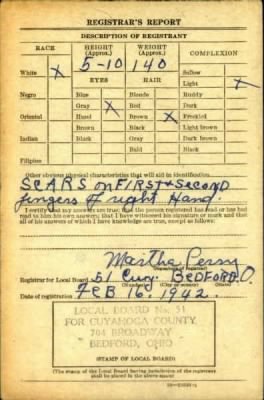 REGISTRAR'S REPORT
DESCRIPTION OF REGISTRANT
RACE HEIGHT (Approx.) WEIGHT (Approx.) COMPLEXION
5-10 140
White X Sallow
EYES HAIR Light X
Negro Blue Blonde Ruddy
Gray X Red Dark
Oriental Hazel Brown X Freckled
Brown Black Light brown
Indian Black Gray Dark brown
Bald Black
Filipino
Other obvious physical characteristics that will aid in identification
SCARS on FIRST & Second
fingers of right Hand.
I certify that my answers are true; that the person registered has read or has had
read to him his own answers; that I have witnessed his signature or mark and that
all of his answers of which I have knowledge are true, except as follows:
Martha Perry
(Signature of registrar)
Registrar for Local Board 51 Cuy. BEDFORD, O.
(Number) (City or county) (State)
Date of registration FEB 16, 1942.
LOCAL BOARD No. 51
FOR CUYAHOGA COUNTY
704 BROADWAY
BEDFORD, OHIO
(STAMP OF LOCAL BOARD)
(The stamp of the Local Board having jurisdiction of the registrant
shall be placed in the above space)